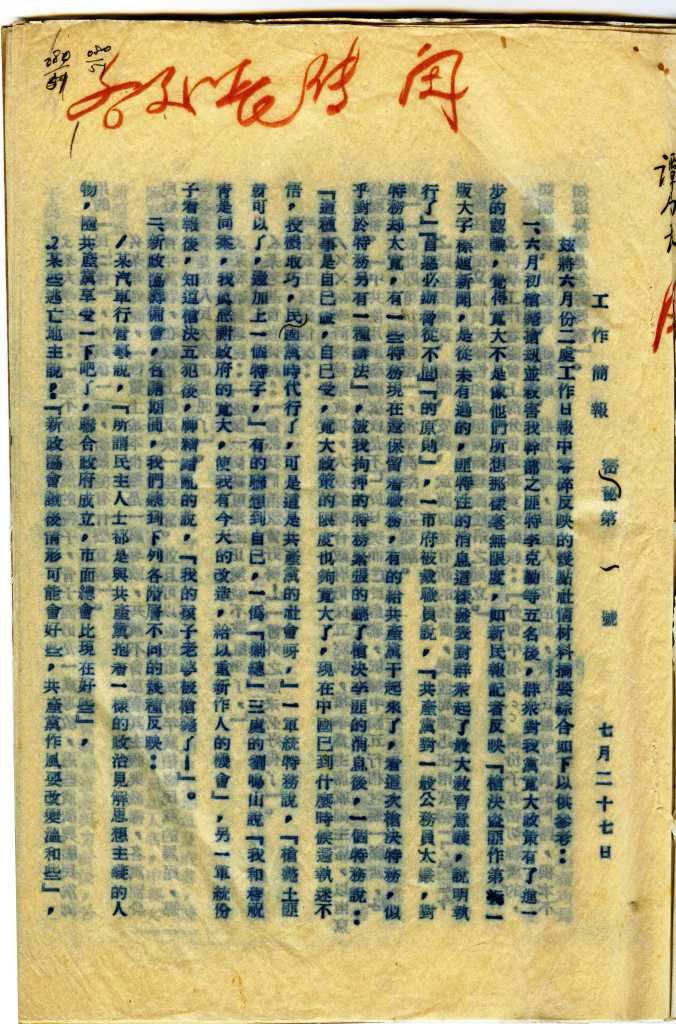 080
51
傳閱
工作簡報 密秘第一號 七月二十七日
茲將六月份二處工作日報中零碎反映的幾點社情材料摘要綜合如下以供參考：
一、六月初槍斃搶刧並殺害我幹部之匪特李克勤等五名後，群衆對我黨寬大政策有了進一
步的認識，覺得寬大不是像他們所想那樣毫無限度，如新民報記者反映「槍決盜匪作第一
版大字標題新聞，是從未有過的，匪特性的消息這樣登載對群衆起了最大教育意義，說明執
行了」「首惡必辦脅從不問」的原則」，一市府被裁職員說，「共產黨對一般公務員太嚴，對
特務却太寬，有一些特務現在還保留着職務，有的給共產黨干起來了，看這次槍決特務，似
乎對於特務另有一種辦法」，被我拘押的特務緊張的聽了槍決李匪的消息後，一個特務說：
「這種事是自己做，自己受，寬大政策的限度也夠寬大了，現在中國已到什麼時候還執迷不
悟，投機取巧，民國黨時代行了，可是這是共產黨的社會呀，」一軍統特務說，「槍斃土匪
就可以了，還加上一個特字，」有的聯想到自己，一僞「剿總」三處的劉暘山說「我和蔣
青是同案，我眞感謝政府的寬大，使我有今天的改造，給以重新作人的機會」，另一軍統份
子看報後，知道槍決五犯後，錯亂的說，「我的孩子老婆被槍斃了！」。
二、新政協籌備會，召開期間，我們聽到下列各階層不同的幾種反映：
1某汽車行說，「所謂民主人士都是與共產黨抱着一樣的政治見解思想主義的人
物，隨共產黨享受一下吧了，聯合政府成立，市面總會比現在好些」，
2某些逃亡地主說：「新政協會議後情形可能會好些，共產黨作風要改變溫和些」，